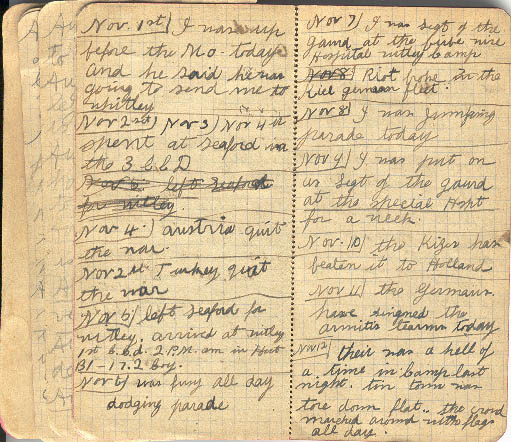 Nov. 1st) I was up
before the M.O. today
And he said he was
going to send me to
whitley
Nov 2nd) Nov 3) Nov 4th
spent at Seaford in
the 3 C.C.D
Nov 5 left Seaford
for witley
Nov 4.) Austria quit
the war.
Nov 2st. Turkey quit
the war
Nov 5) left Seaford for
witley, arrived at witley
1st C.C.d. 2 P.M. am in Hut
B1-17.2 Coy.
Nov 6) was busy all day
dodging parade
Nov 7) I was Segt of the
gaurd at the barbe wire
Hospital witley Camp
Nov 8) Riot broke in the
Kiel german fleet.
Nov 8) I was Jumping
parade today
Nov 9) I was put on
as Segt of the gaurd
at the special Hspt
for a week.
Nov. 10) the Kizer has
beaten it to Holland
Nov 11) the Germans
have singned the
armitis tearms today
Nov 12) their was a hell of
a time in Camp last
night. tin town was
tore down flat.. the crowd
marched around with flags
all day.